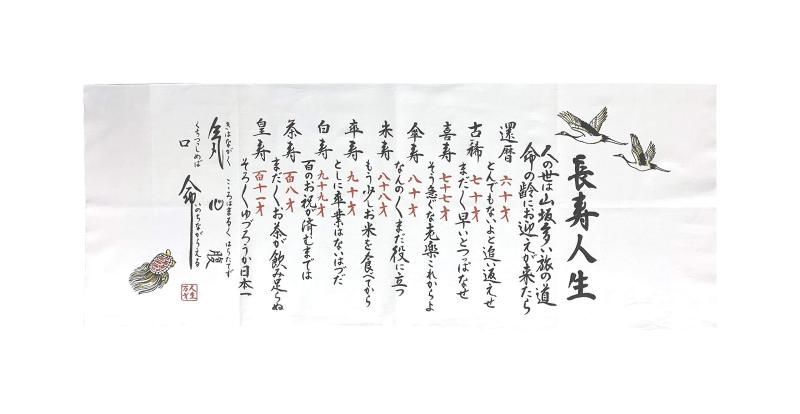 長寿人生
人の世は山坂多い旅の道
命の齢にお迎えが来たら
還暦 六十才
とんでもないよと追い返えせ
古稀 七十才
まだまだ早いとつっぱなせ
喜寿 七十七才
そう急ぐな老楽これからよ
傘寿 八十才
なんのくまだ役に立つ
米寿 八十八才
もう少しお米を食べてから
卒寿 九十才
としに卒業はないはづだ
白寿 九十九才
百のお祝が済むまでは
茶寿 百八才
まだくお茶が飲み足らぬ
皇寿 百十一才
そろくゆづろうか日本一
きはながく こころはまるく はらたてず
氣 心 腹
くちつつしめば いのちながらえる
口 命
人生
万才